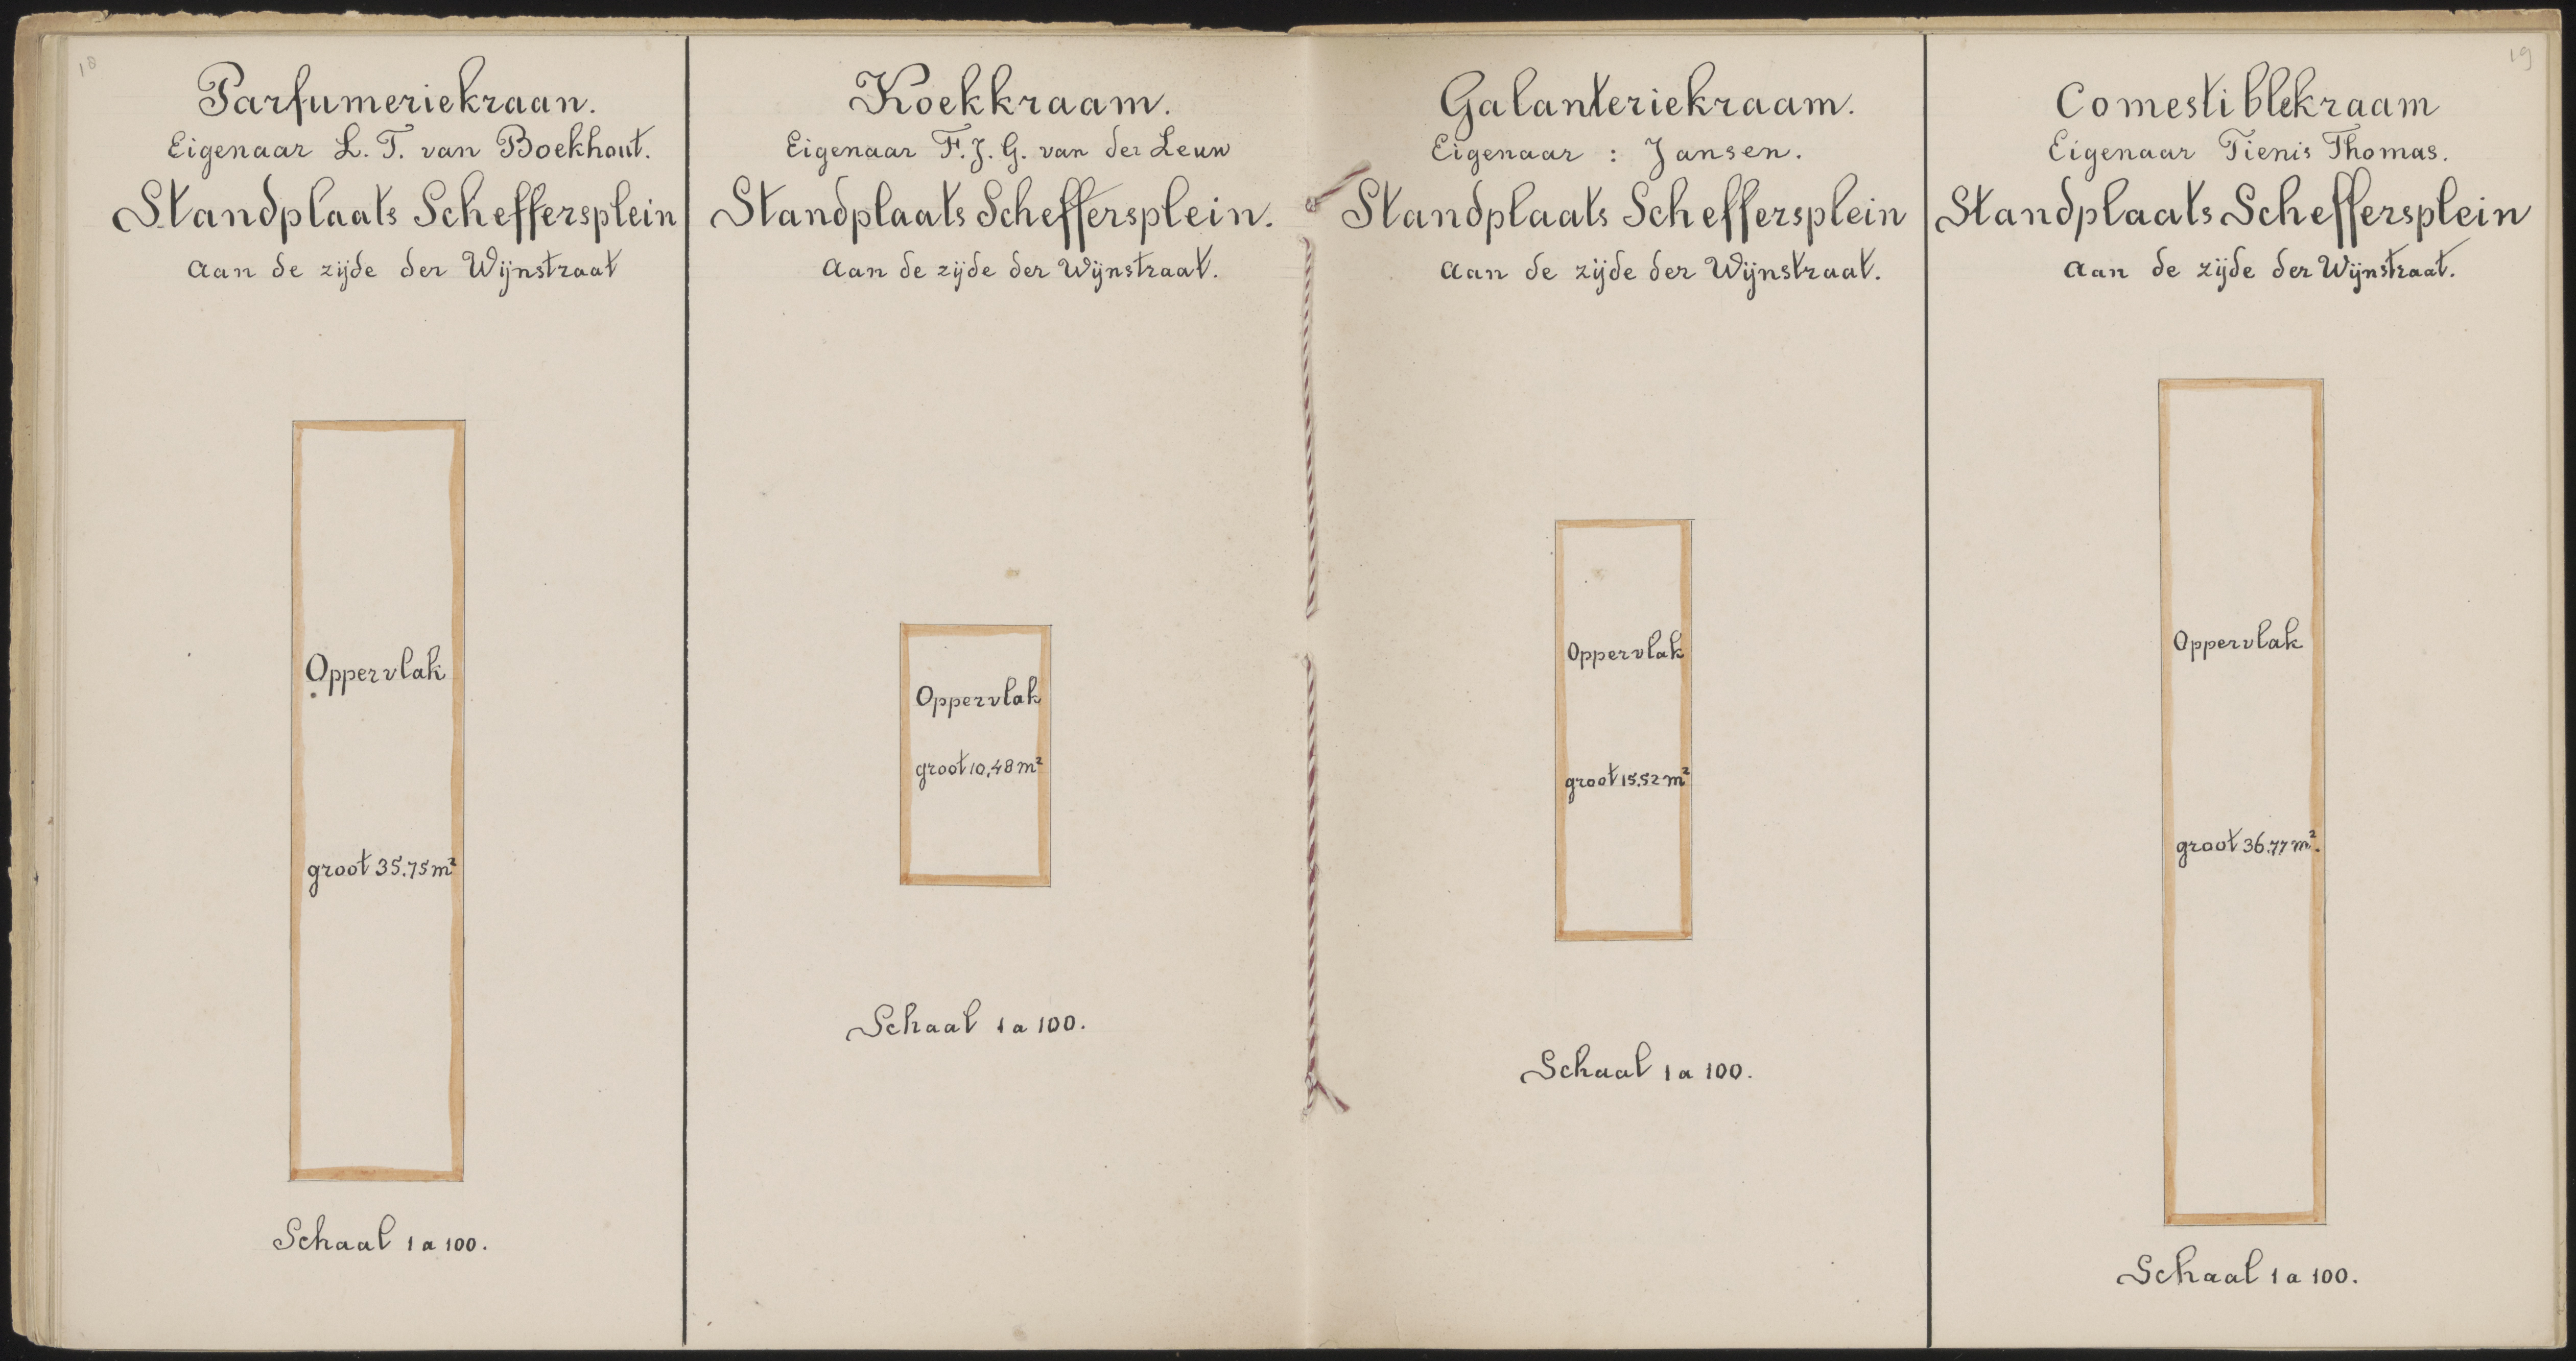 18
Parfumeriekraan.
Eigenaar L. T. van Boekhout.
Standplaats Scheffersplein
aan de zijde der Wijnstraat
Oppervlak
groot 35.75 m²
Schaal 1 a 100.
Koekkraam.
Eigenaar F. J. G. van der Leuw
Standplaats Scheffersplein.
aan de zijde der Wijnstraat.
Oppervlak
groot 10,48 m²
Schaal 1 a 100.
Galanteriekraam.
Eigenaar : Jansen.
Standplaats Scheffersplein
aan de zijde der Wijnstraat.
Oppervlak
groot 15.52 m²
Schaal 1 a 100.
19
Comestiblekraam
Eigenaar Tienis Thomas.
Standplaats Scheffersplein
aan de zijde der Wijnstraat.
Oppervlak
groot 36.77 m².
Schaal 1 a 100.